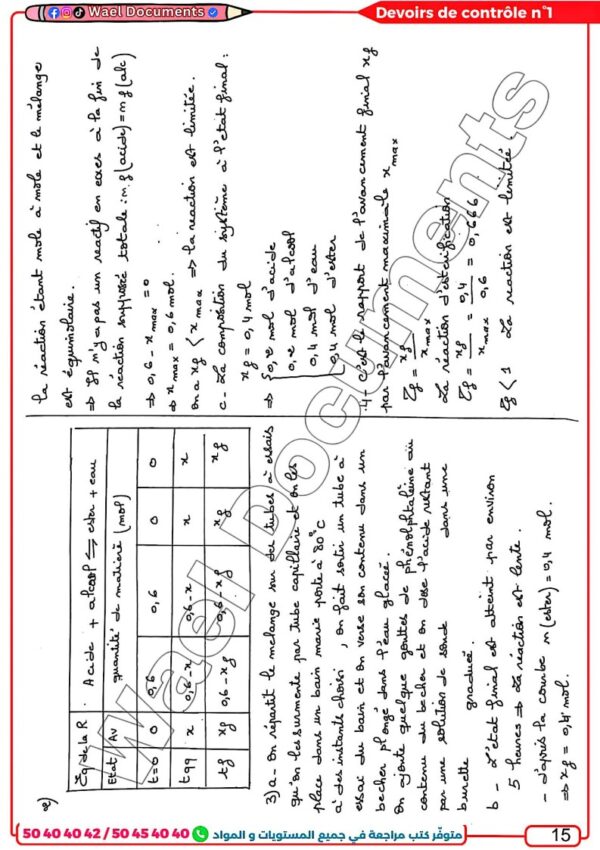 Wael Documents
Devoirs de contrôle n°1
2)
Eq de la R
Acide + alcool ⇌ ester + eau
Etat
Av
quantité de matière (mol)
t=0
0
0,6
0,6
0
0
tqq
x
0,6-x
0,6-x
x
x
tf
xf
0,6-xf
0,6-xf
xf
xf
3) a - On répartit le melange sur des tubes à essais
qu'on les surmente par tube capillaire et on les
place dans un bain marie porte à 80°C
à des instants choisi, on fait sortir un tube à
essai du bain et on verse son contenu dans un
becher plongé dans l'eau glacée.
On ajoute quelque gouttes de phénolphtaleine au
contenu du becher et on dose l'acide restant
par une solution de soude dans une
burette graduée.
b - L'etat final est atteint par environ
5 heures ⇒ La réaction est lente.
- d'après la courbe n(ester) = 0,4 mol.
⇒ xf = 0,4 mol.
la réaction étant mole à mole et le mélange
est équimolaire.
⇒ Il n'y a pas un reactif en exces à la fin de
la réaction supposée totale : nf(acide) = nf(alc)
⇒ 0,6 - xmax = 0
⇒ xmax = 0,6 mol.
on a xf < xmax ⇒ la reaction est limitée.
c - La composition du système à l'etat final :
xf = 0,4 mol
⇒ { 0,2 mol d'acide
0,2 mol d'alcool
0,4 mol d'eau
0,4 mol d'ester
4 - C'est le rapport de l'avancement final xf
par l'avancement maximale xmax
τf = xf / xmax
La réaction d'esterification
τf = xf / xmax = 0,4 / 0,6 = 0,666
τf < 1 La reaction est limitée.
Wael Documents
50 40 40 42 / 50 45 40 40
متوفر كتب مراجعة في جميع المستويات و المواد
15